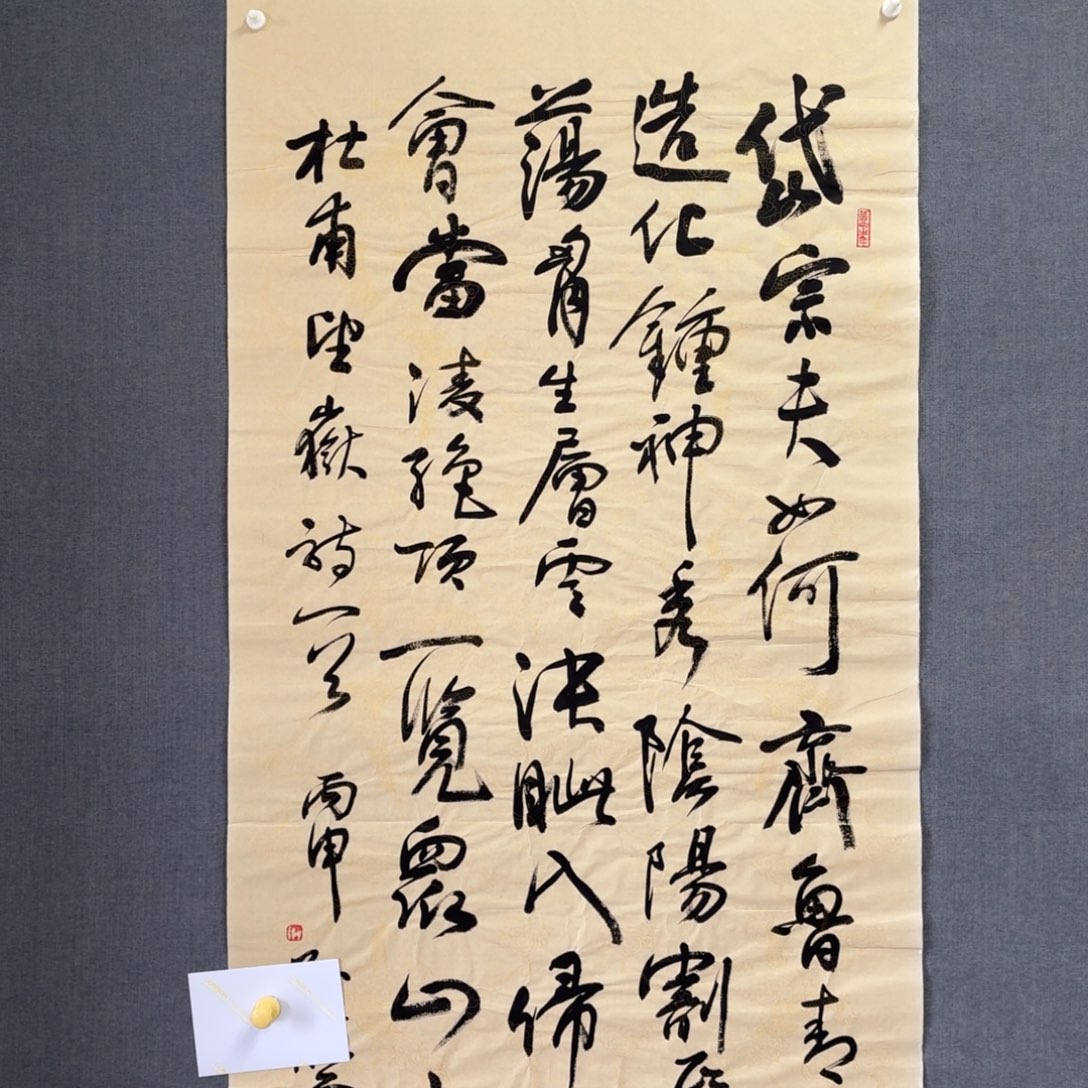 岱宗夫如何齊魯青
造化鍾神秀陰陽割
蕩胷生層雲決眦入歸
會當淩絕頂一覽眾山
杜甫望嶽詩一首 丙申